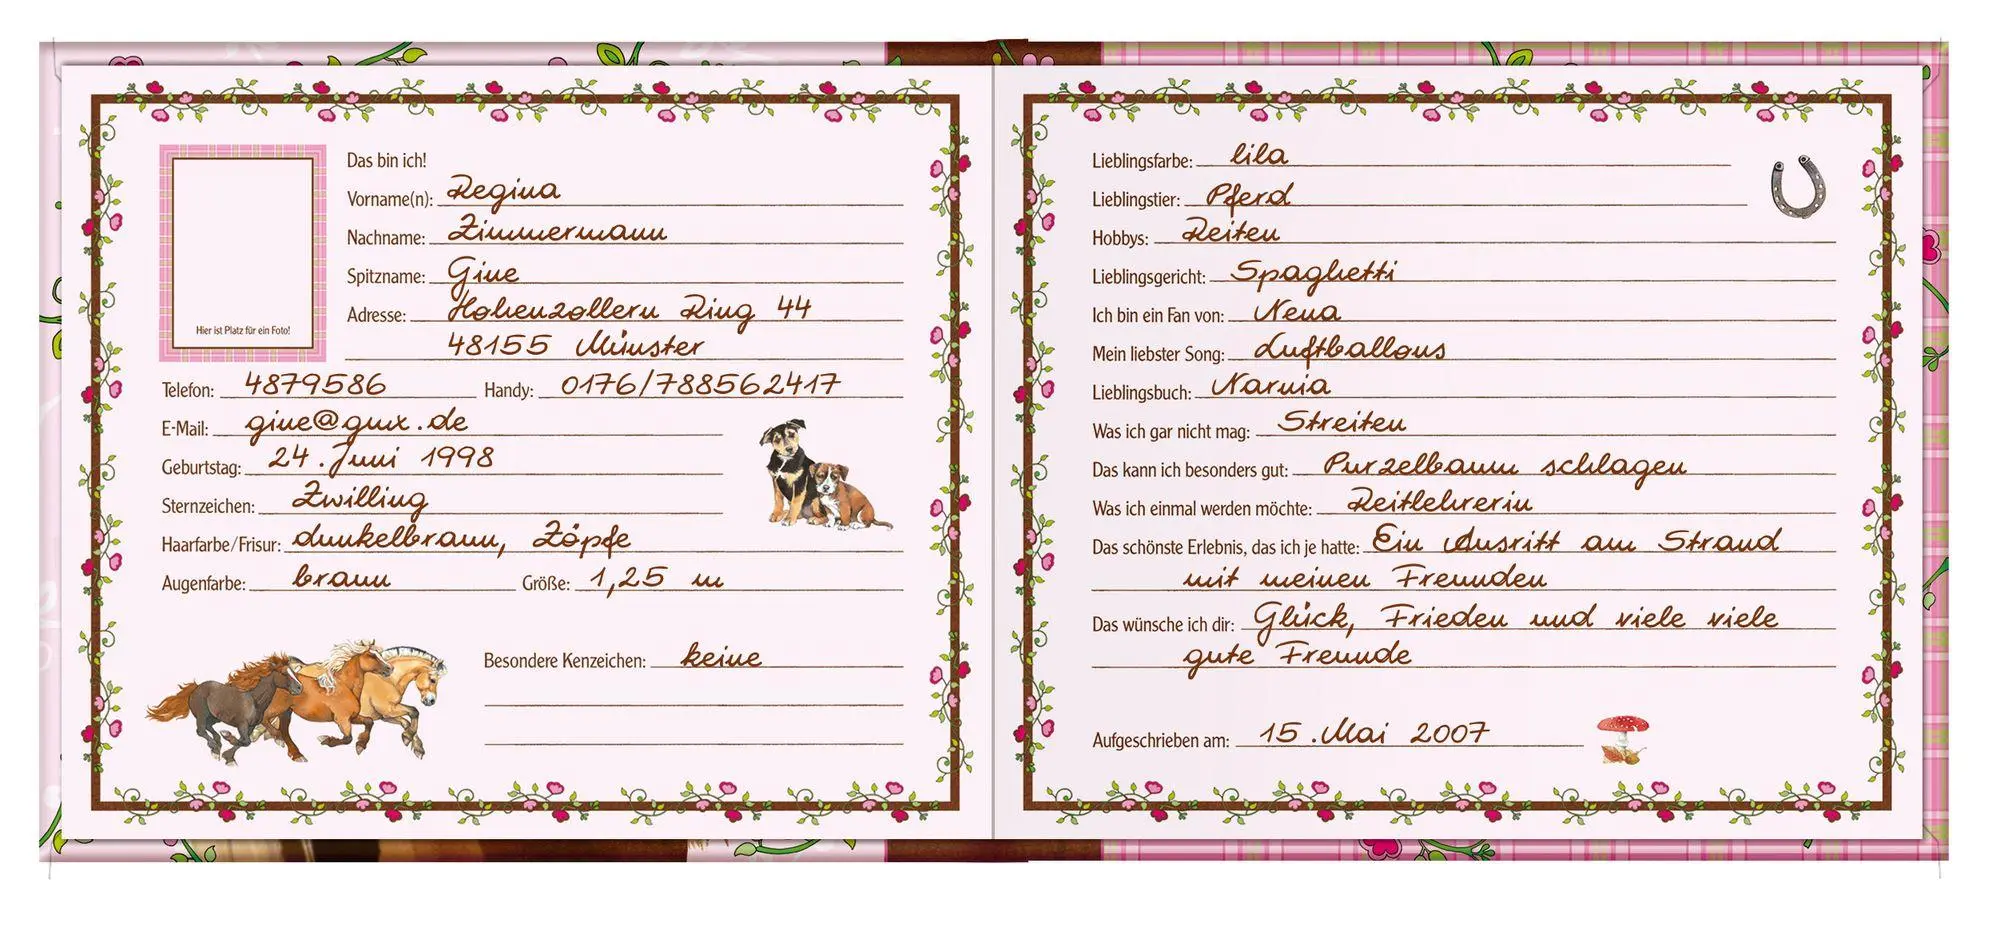 Das bin ich!
Vorname(n): Regina
Nachname: Zimmermann
Spitzname: Gine
Adresse: Hohenzollern Ring 44
48155 Münster
Hier ist Platz für ein Foto!
Telefon: 4879586 Handy: 0176/788562417
E-Mail: gine@gux.de
Geburtstag: 24. Juni 1998
Sternzeichen: Zwilling
Haarfarbe/Frisur: dunkelbraun, Zöpfe
Augenfarbe: braun Größe: 1,25 m
Besondere Kenzeichen: keine
Lieblingsfarbe: lila
Lieblingstier: Pferd
Hobbys: Reiten
Lieblingsgericht: Spaghetti
Ich bin ein Fan von: Nena
Mein liebster Song: Luftballons
Lieblingsbuch: Narnia
Was ich gar nicht mag: Streiten
Das kann ich besonders gut: Purzelbaum schlagen
Was ich einmal werden möchte: Reitlehrerin
Das schönste Erlebnis, das ich je hatte: Ein Ausritt am Strand
mit meinen Freunden
Das wünsche ich dir: Glück, Frieden und viele viele
gute Freunde
Aufgeschrieben am: 15. Mai 2007